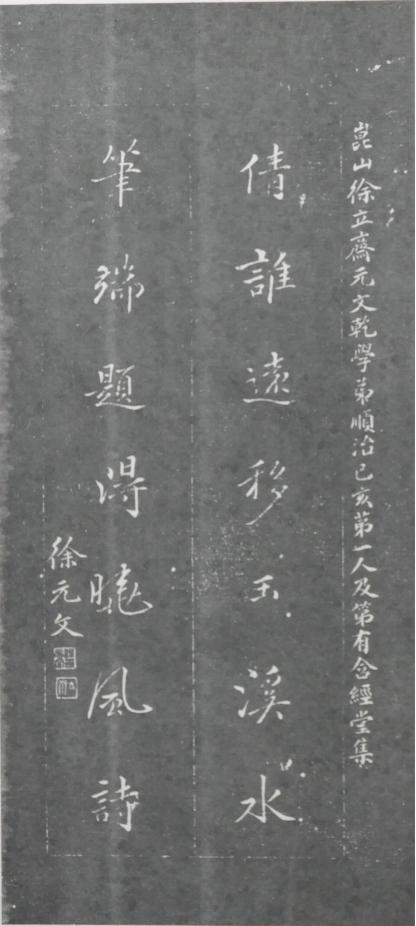 崑山徐立齋元文乾學弟順治己亥第一人及第有含經堂集
倩誰遠移玉溪水
筆端題得曉風詩
徐元文